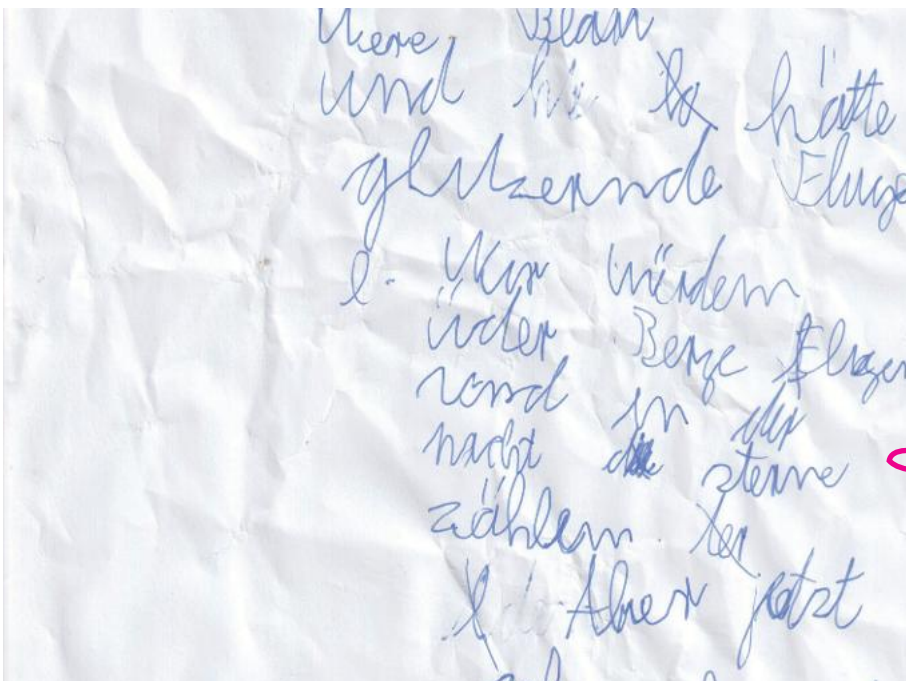 Were Blau
und hätte
glitzernde Fluge
l. Wir würden
üder Berge fluge
und in der
nacht die sterne
zählen.
Aber jetzt